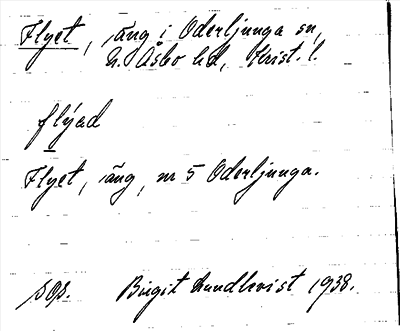 Flyet, äng i Oderljunga sn,
N. Åsbo hd, Krist. l.
flýad
Flyet, äng, nr 5 Oderljunga.
sop. Birgit Lundkvist 1938.